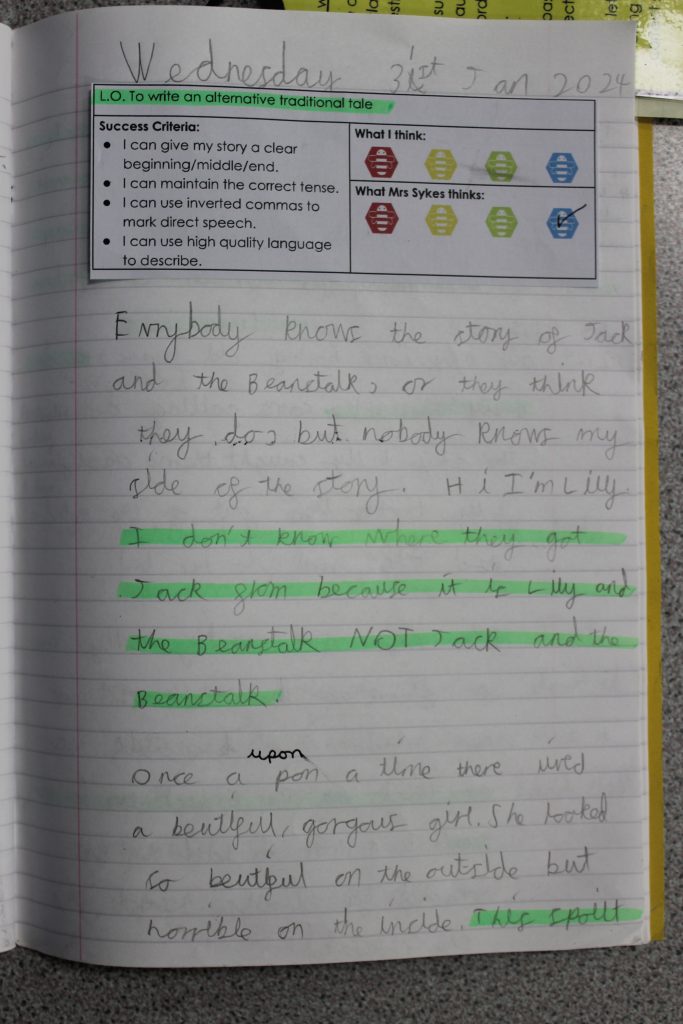 Wednesday 31st Jan 2024
L.O. To write an alternative traditional tale
Success Criteria:
I can give my story a clear
beginning/middle/end.
I can maintain the correct tense.
I can use inverted commas to
mark direct speech.
I can use high quality language
to describe.
What I think:
What Mrs Sykes thinks:
Evrybody knows the story of Jack
and the Beanstalk, or they think
they do, but nobody knows my
side of the story. Hi I'm Lilly.
I don't know where they got
Jack from because it is Lilly and
the Beanstalk NOT Jack and the
Beanstalk!
upon
Once a pon a time there lived
a beutifull, gorgous girl. She looked
so beutiful on the outside but
horrible on the incide. This spoilt